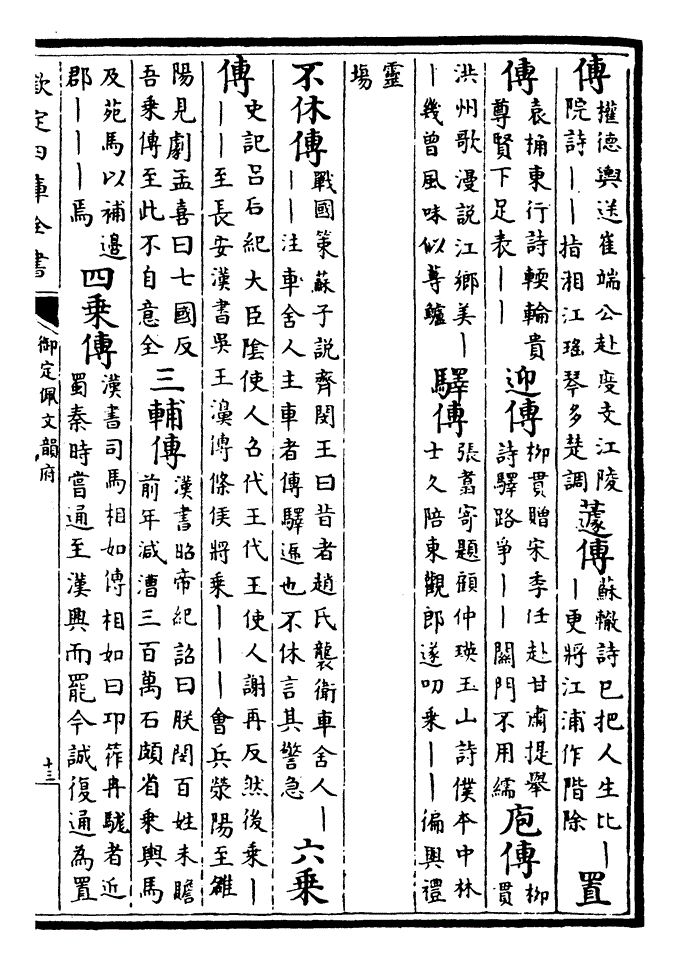 傳權德輿送崔端公赴度支江陵院詩｜｜指湘江瑤琴多楚調蘧傳蘇轍詩已把人生比｜｜更將江浦作階除置
傳袁桷東行詩輭輪貴尊賢下足表｜｜迎傳柳貫贈宋季任赴甘肅提舉詩驛路爭｜｜關門不用繻庖傳柳貫
洪州歌漫說江鄉美｜｜幾曾風味似蓴鱸驛傳張翥寄題顧仲瑛玉山詩僕本中林士久陪東觀郎遂叨乘｜｜徧輿禮
靈塲
不休傳戰國策蘇子說齊閔王曰昔者趙氏襲衛車舍人｜｜｜注車舍人主車者傳驛遞也不休言其警急六乘
傳史記呂后紀大臣隂使人召代王代王使人謝再反然後乘｜｜｜至長安漢書吳王濞傳條侯將乘｜｜｜會兵滎陽至雒
陽見劇孟喜曰七國反吾乘傳至此不自意全三輔傳漢書昭帝紀詔曰朕閔百姓未贍前年減漕三百萬石頗省乘輿馬
及苑馬以補邊郡｜｜｜焉四乘傳漢書司馬相如傳相如曰卭筰冉駹者近蜀秦時嘗通至漢興而罷今誠復通為置
欽定四庫全書
御定佩文韻府
十三